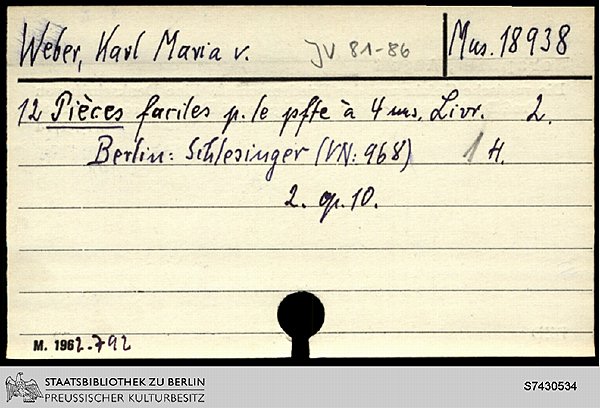 Weber, Karl Maria v. JV 81-86 Mus. 18938
12 Pièces faciles p. le pfte à 4 ms. Livr. 2.
Berlin: Schlesinger (VN: 968) 1 H.
2. op. 10.
M. 1962.792
STAATSBIBLIOTHEK ZU BERLIN
PREUSSISCHER KULTURBESITZ
S7430534